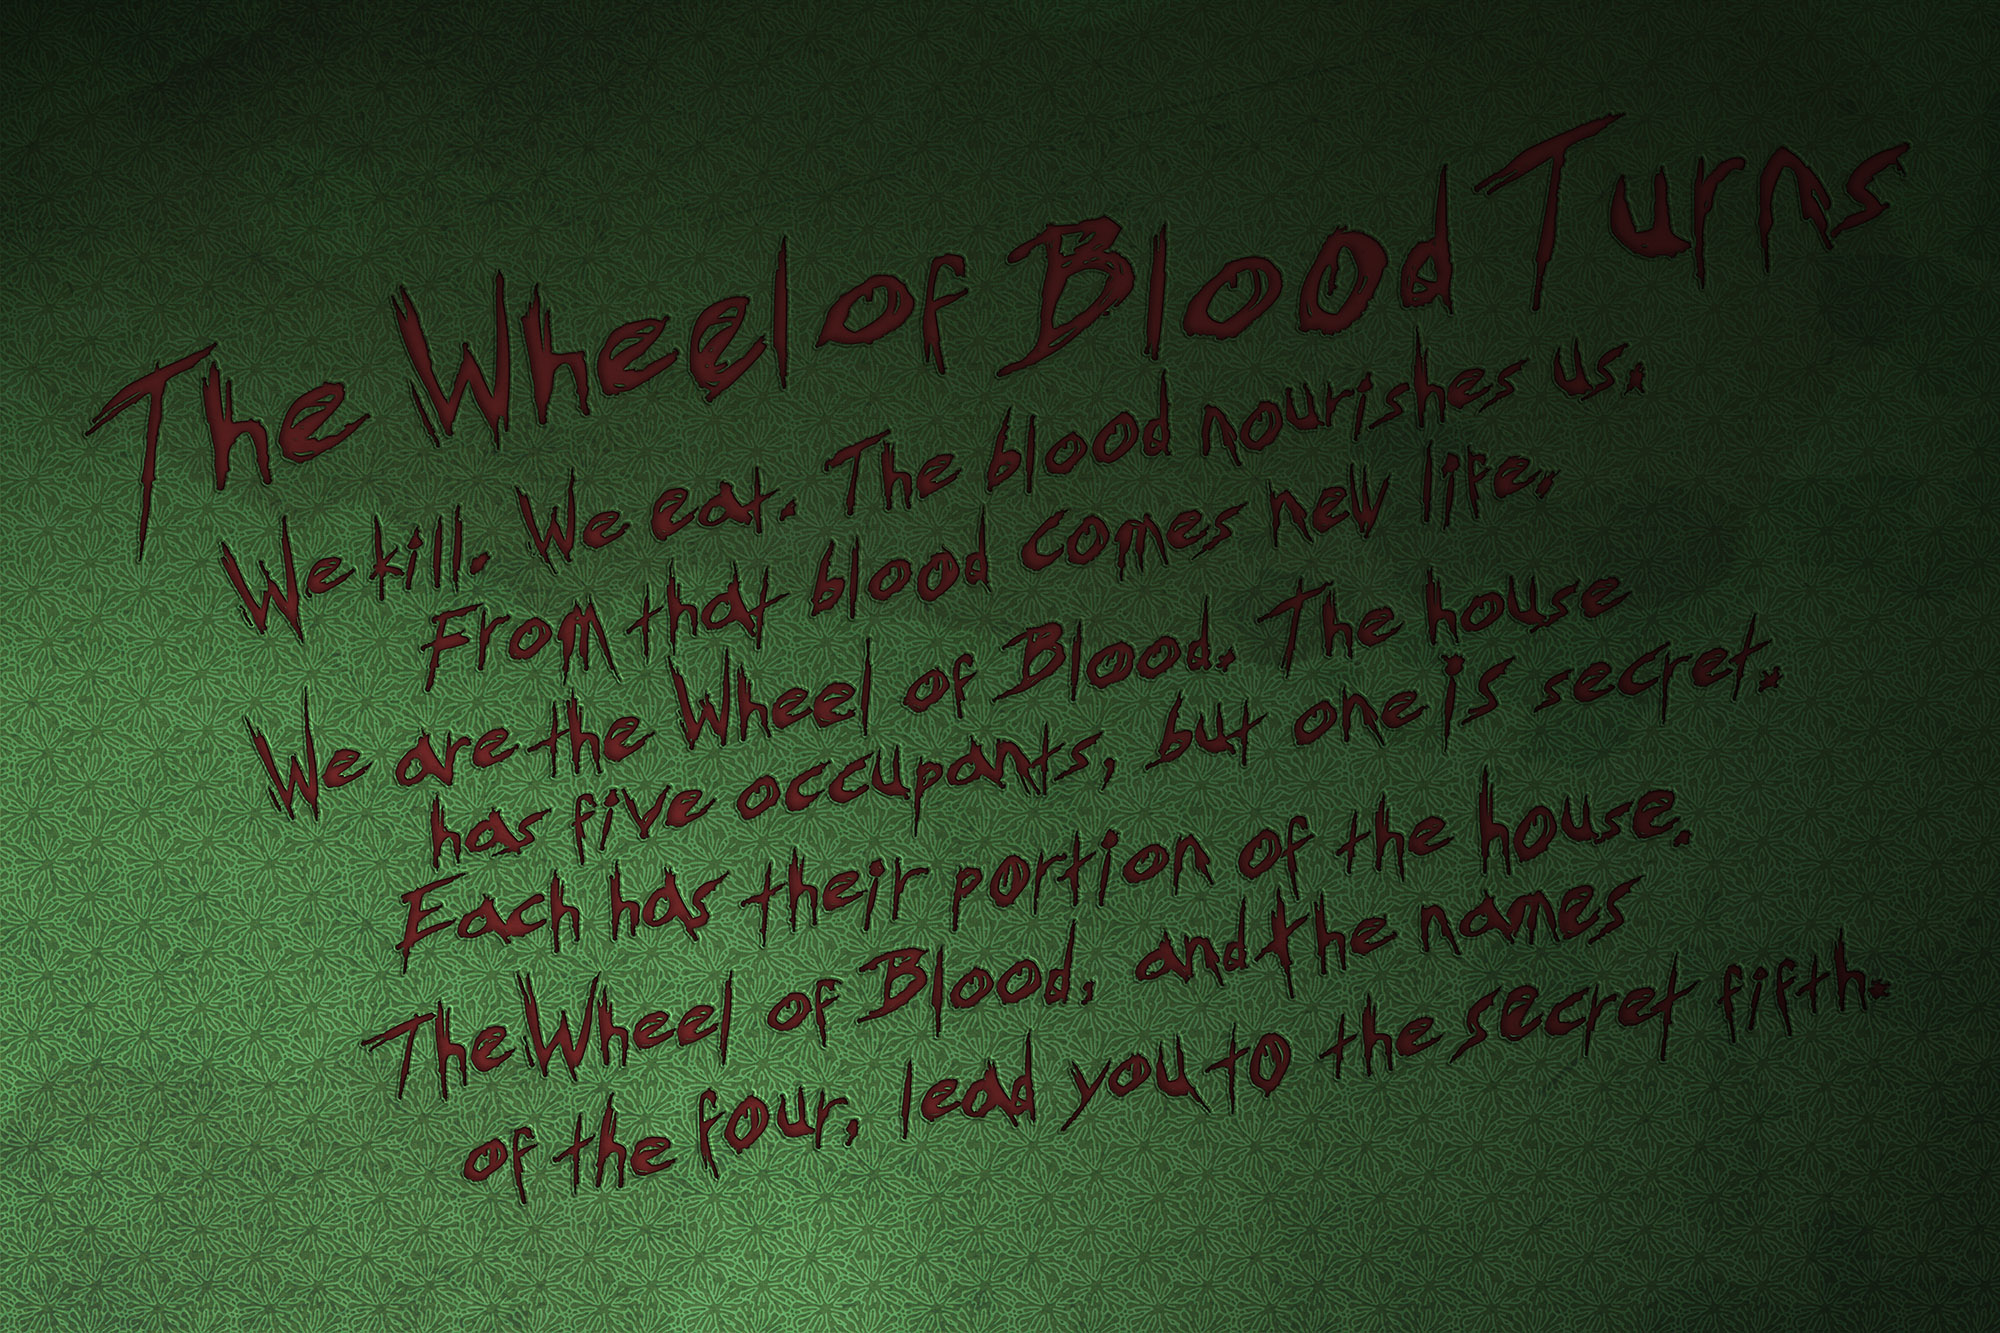 The Wheel of Blood Turns
We kill. We eat. The blood nourishes us.
From that blood comes new life.
We are the Wheel of Blood. The house
has five occupants, but one is secret.
Each has their portion of the house.
The Wheel of Blood, and the names
of the four, lead you to the secret fifth.